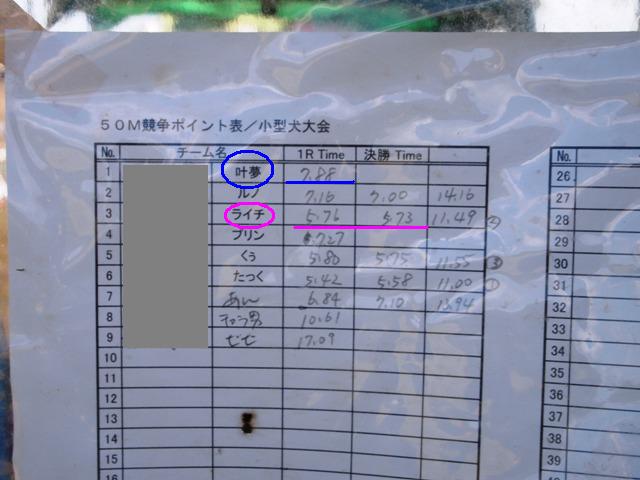 50M競争ポイント表/小型犬大会
No. チーム名 1R Time 決勝 Time
1 叶夢 7.88
2 ルノ 7.16 7.00 14.16
3 ライチ 5.76 5.73 11.49 ②
4 プリン 7.27
5 くぅ 5.80 5.75 11.55 ③
6 たっく 5.42 5.58 11.00 ①
7 あん 6.84 7.10 13.94
8 チャラ男 10.61
9 17.09
10
11
12
13
14
15
16
No.
26
27
28
29
30
31
32
33
34
35
36
37
38
39
40